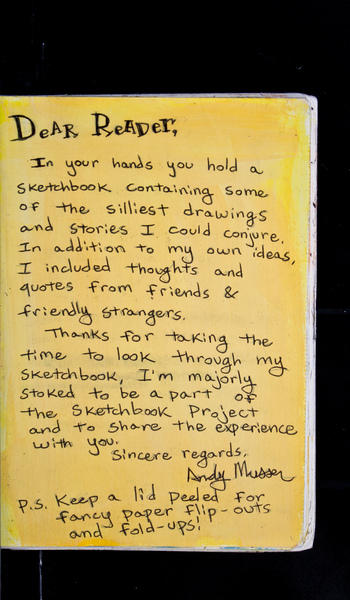 DEAR READER,
In your hands you hold a
sketchbook containing some
of the silliest drawings
and stories I could conjure.
In addition to my own ideas,
I included thoughts and
quotes from friends &
friendly strangers.
Thanks for taking the
time to look through my
sketchbook, I'm majorly
stoked to be a part of
the Sketchbook Project
and to share the experience
with you.
Sincere regards,
Andy Musser
P.S. Keep a lid peeled for
fancy paper flip-outs
and fold-ups!